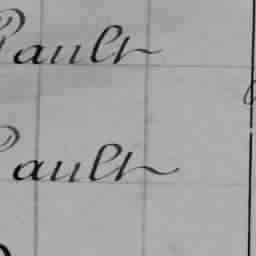 Pault
Pault